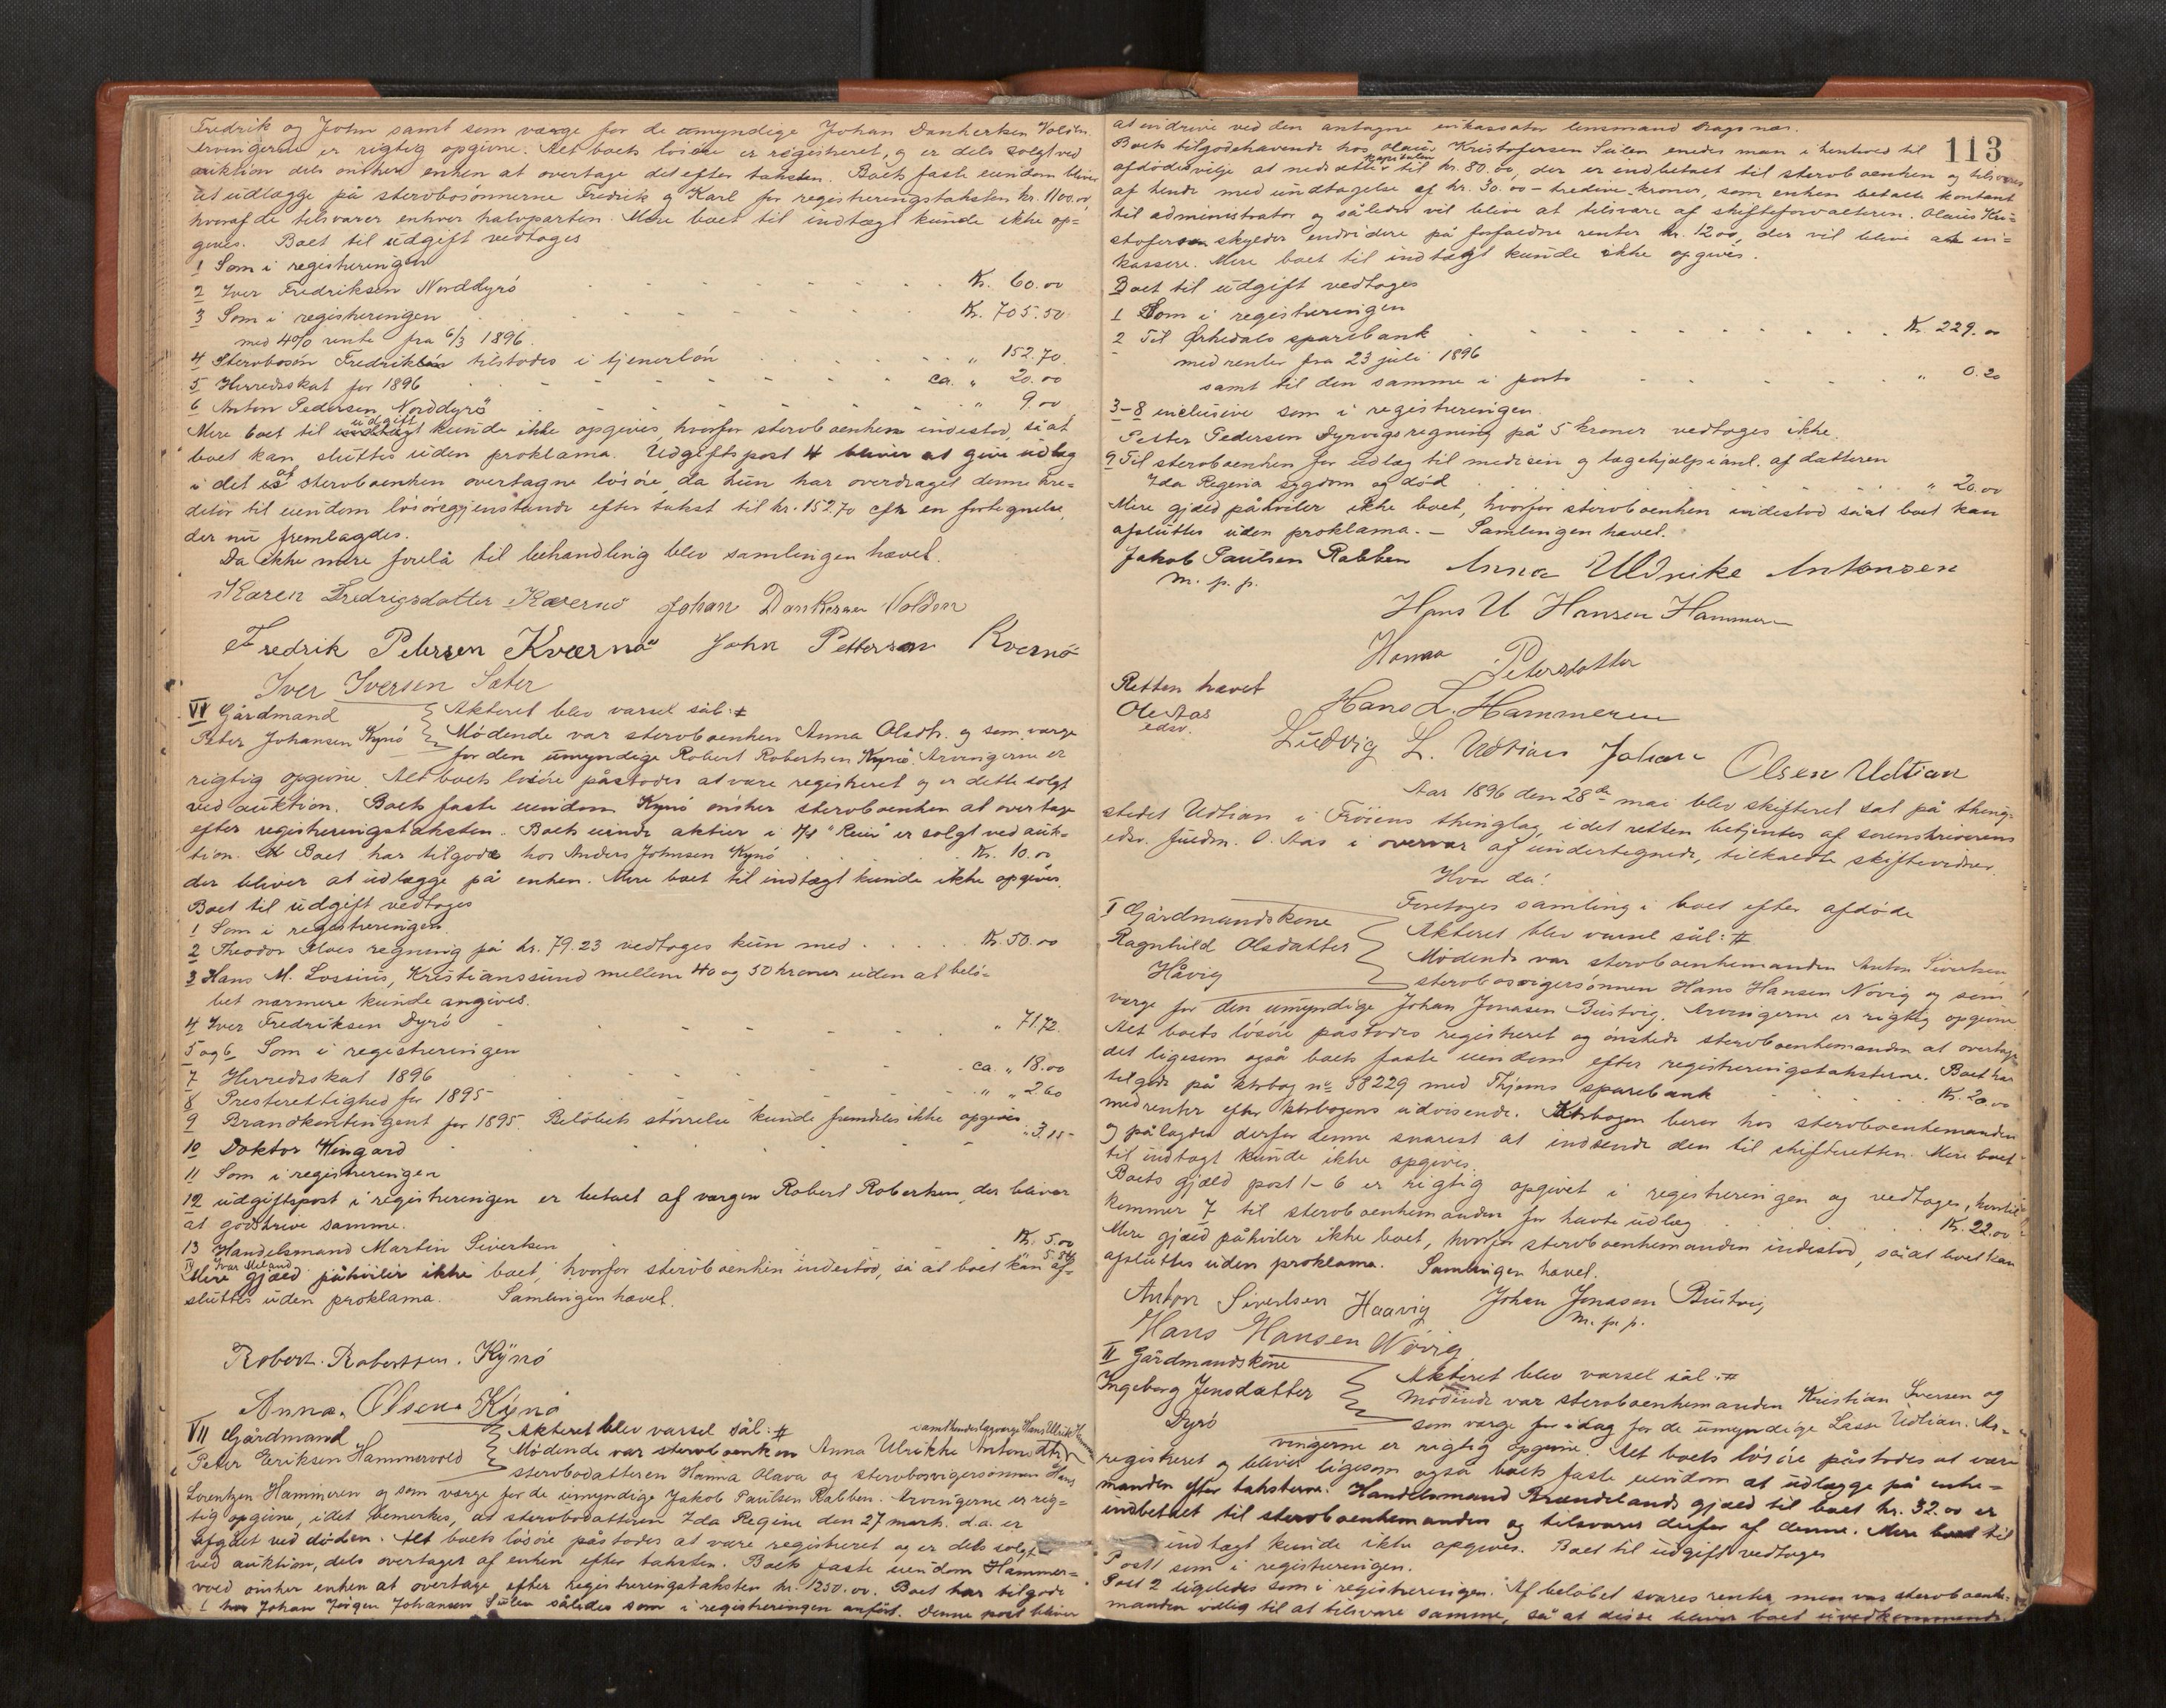 Fredrik og John samt som værge for de umyndige Johan Dankertsen Volden.
Arvingerne er rigtig opgivne. Alt boets løsøre er registreret, og er dels solgt ved
auktion dels ønsker enken at overtage det efter taksten. Boets faste eiendom bliver
at udlægge på stervbosønnerne Fredrik og Karl for registreringstaksten kr. 1100.00,
hvoraf de tilsvarer enhver halvparten. Mere boet til indtægt kunde ikke op=
gives. Boet til udgift vedtoges
1 Som i registreringen
2 Iver Fredriksen Norddyrø Kr. 60.00
3 Som i registreringen Kr. 705.50
med 4% rente fra 6/3 1896.
4 Stervbosøn Fredrik tilstodes i tjenerløn " 152.70.
5 Herredsskat for 1896 ca. " 20.00
6 Anton Pedersen Norddyrø " 9.00
Mere boet til udgift kunde ikke opgives, hvorfor stervboenken indestod, så at
boet kan sluttes uden proklama. Udgiftspost 4 bliver at give udlæg
i det af stervboenken overtagne løsøre, da hun har overdraget denne kre=
ditor til eiendom løsøregjenstande efter takst til kr. 152.70 cfr en fortegnelse,
der nu fremlagdes.
Da ikke mere forelå til behandling blev samlingen hævet.
Karen Fredrigsdatter Kværnø Johan Dankersen Volden
Fredrik Petersen Kværnø John Pettersen Kvernø
Iver Iversen Sæter
VI Gårdmand
Peter Johansen Kynø
Akteret blev varsel sål: #
Mødende var stervboenken Anna Olsdtr. og som værge
for den umyndige Robert Robertsen Kynø. Arvingerne er
rigtig opgivne. Alt boets løsøre påstodes at være registreret og er dette solgt
ved auktion. Boets faste eiendom Kynø ønsker stervboenken at overtage
efter registreringstaksten. Boets eiende aktier i "Rein" er solgt ved auk=
tion. Boet har tilgode hos Anders Johnsen Kynø Kr. 10.00
der bliver at udlægge på enken. Mere boet til indtægt kunde ikke opgives.
Boet til udgift vedtoges
1 Som i registreringen
2 Theodor regning på kr. 79.23 vedtoges kun med Kr. 50.00
3 Hans M. Lossius, Kristianssund mellem 40 og 50 kroner uden at belø=
bet nærmere kunde angives.
4 Iver Fredriksen Dyrø " 71.72.
5 og 6 Som i registreringen
7 Herredsskat 1896 ca. " 18.00
8 Presterettighed for 1895 " " 2.60
9 Brandkontingent for 1895. Beløbets størrelse kunde fremdeles ikke opgives
10 Doktor Wingård " 3.15
11 Som i registreringen
12 udgiftspost i registreringen er betalt af værgen Robert Robertsen, der bliver
at godskrive samme.
13 Handelsmand Martin Sivertsen Kr. 5.00
14 Ivar Meland 5.84
Mere gjæld påhviler ikke boet, hvorfor stervboenken indestod, så at boet kan af=
sluttes uden proklama. Samlingen hævet.
Robert. Robertsen. Kynø
Anna. Olsen. Kynø
VII Gårdmand
Peter Eriksen Hammervold
Akteret blev varsel sål: #
samt hendes lagværge Hans Ulrik
Mødende var stervboenken Anna Ulrikke Antonsdtr,
stervbodatteren Hanna Olava og stervbosvigersønnen Hans
Lorentzen Hammeren og som værge for de umyndige Jakob Paulsen Rabben. Arvingerne er rig=
tig opgivne, idet bemerkes, at stervbodatteren Ida Regine den 27 marts d.a. er
afgået ved døden. Alt boets løsøre påstodes at være registreret og er dels solgt
ved auktion, dels overtaget af enken efter taksten. Boets faste eiendom Hammer=
vold ønsker enken at overtage efter registreringstaksten kr. 1250.00. Boet har tilgode
1 hos Johan Jørgen Johansen Sulen således som i registreringen anført. Denne post bliver
113
at indrive ved den antagne inkassator lensmand Dragsnæs.
Boets tilgodehavende hos Olaus Kristofersen Sulen enedes man i henhold til
afdødes vilje at nedsætte kapitalen til kr. 80.00, der er indbetalt til stervboenken og tilsvares
af hende med undtagelse af kr. 30.00 – tredive kroner, som enken betalte kontant
til administrator og således vil blive at tilsvare af skifteforvalteren. Olaus Kri=
stofersen skylder endvidere på forfaldne renter kr. 12.00, der vil blive at in=
kassere. Mere boet til indtægt kunde ikke opgives.
Boet til udgift vedtoges
1 Som i registreringen
2 Til Ørkedals sparebank Kr. 229.00
med renter fra 23 juli 1896
samt til den samme i porto " 0.20
3–8 inclusive som i registreringen.
Petter Pedersen Dyrvigs regning på 5 kroner vedtoges ikke.
9 Til stervboenken for udlæg til medisin og lægehjælp i anl. af datteren
Ida Regina sygdom og død " 20.00
Mere gjæld påhviler ikke boet, hvorfor stervboenken indestod så at boet kan
afsluttes uden proklama. – Samlingen hævet.
Jakob Paulsen Rabben Anna Uldrike Antonsen
m. p. p.
Hans U Hansen Hammer
Hanna Petersdatter
Retten hævet
Ole Aas
edsv.
Hans L. Hammeren
Ludvig L. Udtian Johan Olsen Udtian
Aar 1896 den 28de mai blev skifteret sat på thing=
stedet Udtian i Frøiens thinglag, idet retten betjentes af sorenskriverens
edsv. fuldm. O. Aas i overvær af undertegnede, tilkaldte skiftevidner.
Hvor da:
Foretoges samling i boet efter afdøde
I Gårdmandskone
Ragnhild Olsdatter
Håvig
Akteret blev varsel sål: #
Mødende var stervboenkemanden Anton Sivertsen
stervbosvigersønnen Hans Hansen Nøvig og som
værge for den umyndige Johan Jonasen Bustvig. Arvingerne er rigtig opgivne
Alt boets løsøre påstodes registreret og ønskede stervboenkemanden at overtage
det ligesom også boets faste eiendom efter registreringstaksterne. Boet har
tilgode på ktrbog no 58229 med Thjems sparebank Kr. 20.00
med renter efter ktrbogens udvisende. Ktrbogen beror hos stervboenkemanden
og pålagdes derfor denne snarest at indsende den til skifteretten. Mere boet
til indtægt kunde ikke opgives.
Boets gjæld post 1–6 er rigtig opgivet i registreringen og vedtoges, hertil
kommer 7 til stervboenkemanden for havte udlæg Kr. 22.00
Mere gjæld påhviler ikke boet, hvorfor stervboenkemanden indestod, så at boet kan
afsluttes uden proklama. Samlingen hævet.
Anton Sivertsen Haavig Johan Jonasen Bustvig
m. p. p.
Hans Hansen Nøvig
II Gårdmandskone
Ingeborg Jensdatter
Dyrø
Akteret blev varsel sål: #
Mødende var stervboenkemanden Kristian Iversen og
som værge for idag for de umyndige Lasse Udtian. Ar=
vingerne er rigtig opgivne. Alt boets løsøre påstodes at være
registreret og bliver ligesom også boets faste eiendom at udlægge på enke=
manden efter taksterne. Handelsmand Brændelands gjæld til boet kr. 32.00 er
indbetalt til stervboenkemanden og tilsvares derfor af denne. Mere boet til
indtægt kunde ikke opgives. Boet til udgift vedtoges
Post 1 som i registreringen.
Post 2 ligeledes som i registreringen. Af beløbet svares renter, men var stervboenke=
manden villig til at tilsvare samme, så at disse bliver boet uvedkommende.